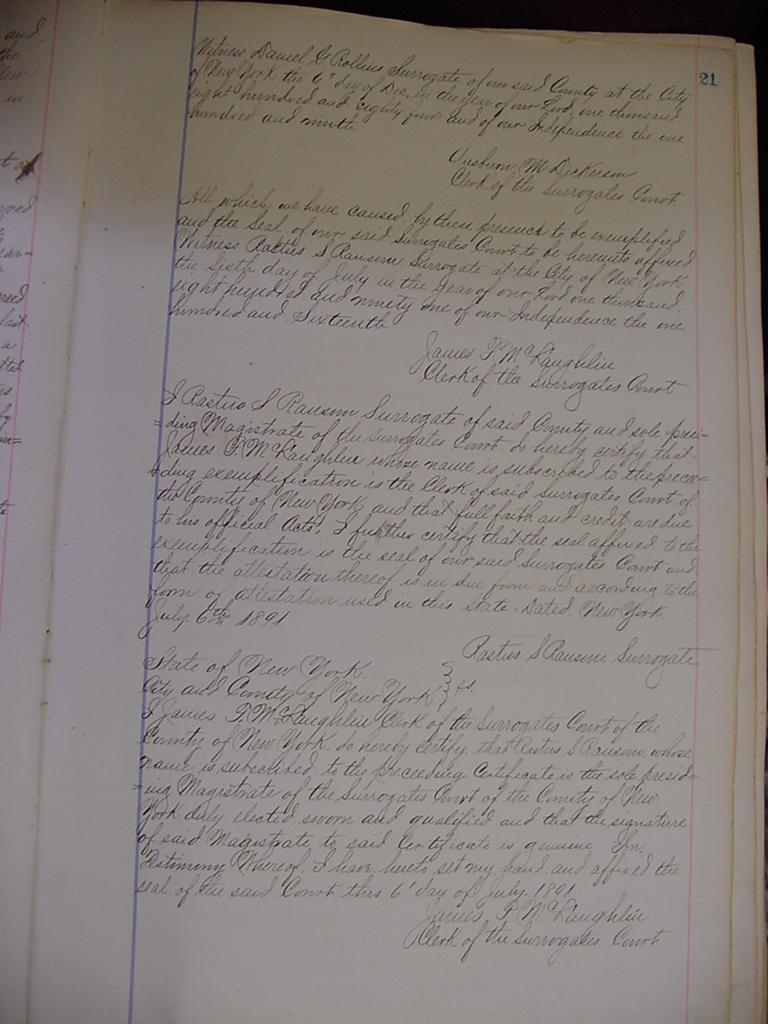 21
Witness Daniel G Rollins Surrogate of our said County at the City
of New York the 6" day of Dec. in the year of our Lord, one thousand
eight hundred and eighty four and of our Independence the one
hundred and ninth
M Dickerson
Clerk of the Surrogates Court.
All which we have caused by these presence to be exemplified
and the Seal of our said Surrogates Court to be hereunto affixed
Witness Rastus S Ransom, Surrogate at the City of New York
the Sixth day of July in the Year of our Lord one thousand
eight hundred and ninety one of our Independence the one
hundred and Sixteenth
James F. McLaughlin
Clerk of the Surrogates Court.
I Rastus S Ransom Surrogate of said County and sole presi-
=ding Magistrate of the Surrogates Court. do hereby certify that
James F. McLaughlin whose name is subscribed to the prece=
=ding exemplification is the Clerk of said Surrogates Court of
the County of New York, and that full faith and credit are due
to his official Acts, I further certify that the seal affixed to the
exemplification is the seal of our said Surrogates Court and
that the attestation thereof is in due form and according to the
form of attestation used in this State. Dated, New York.
July 6th 1891
Rastus S Ransom Surrogate
State of New York.
City and County of New York } ss.
I James F. McLaughlin Clerk of the Surrogates Court of the
County of New York. do hereby certify, that Rastus S Ransom, whose
name is subscribed to the preceeding Certificate is the sole presid-
=ing Magistrate of the Surrogates Court of the County of New
York duly elected sworn and qualified and that the signature
of said Magistrate to said Certificate is genuine, In
Testimony Whereof, I have hereto set my hand and affixed the
seal of the said Court this 6" day of July. 1891
James F. McLaughlin
Clerk of the Surrogates Court